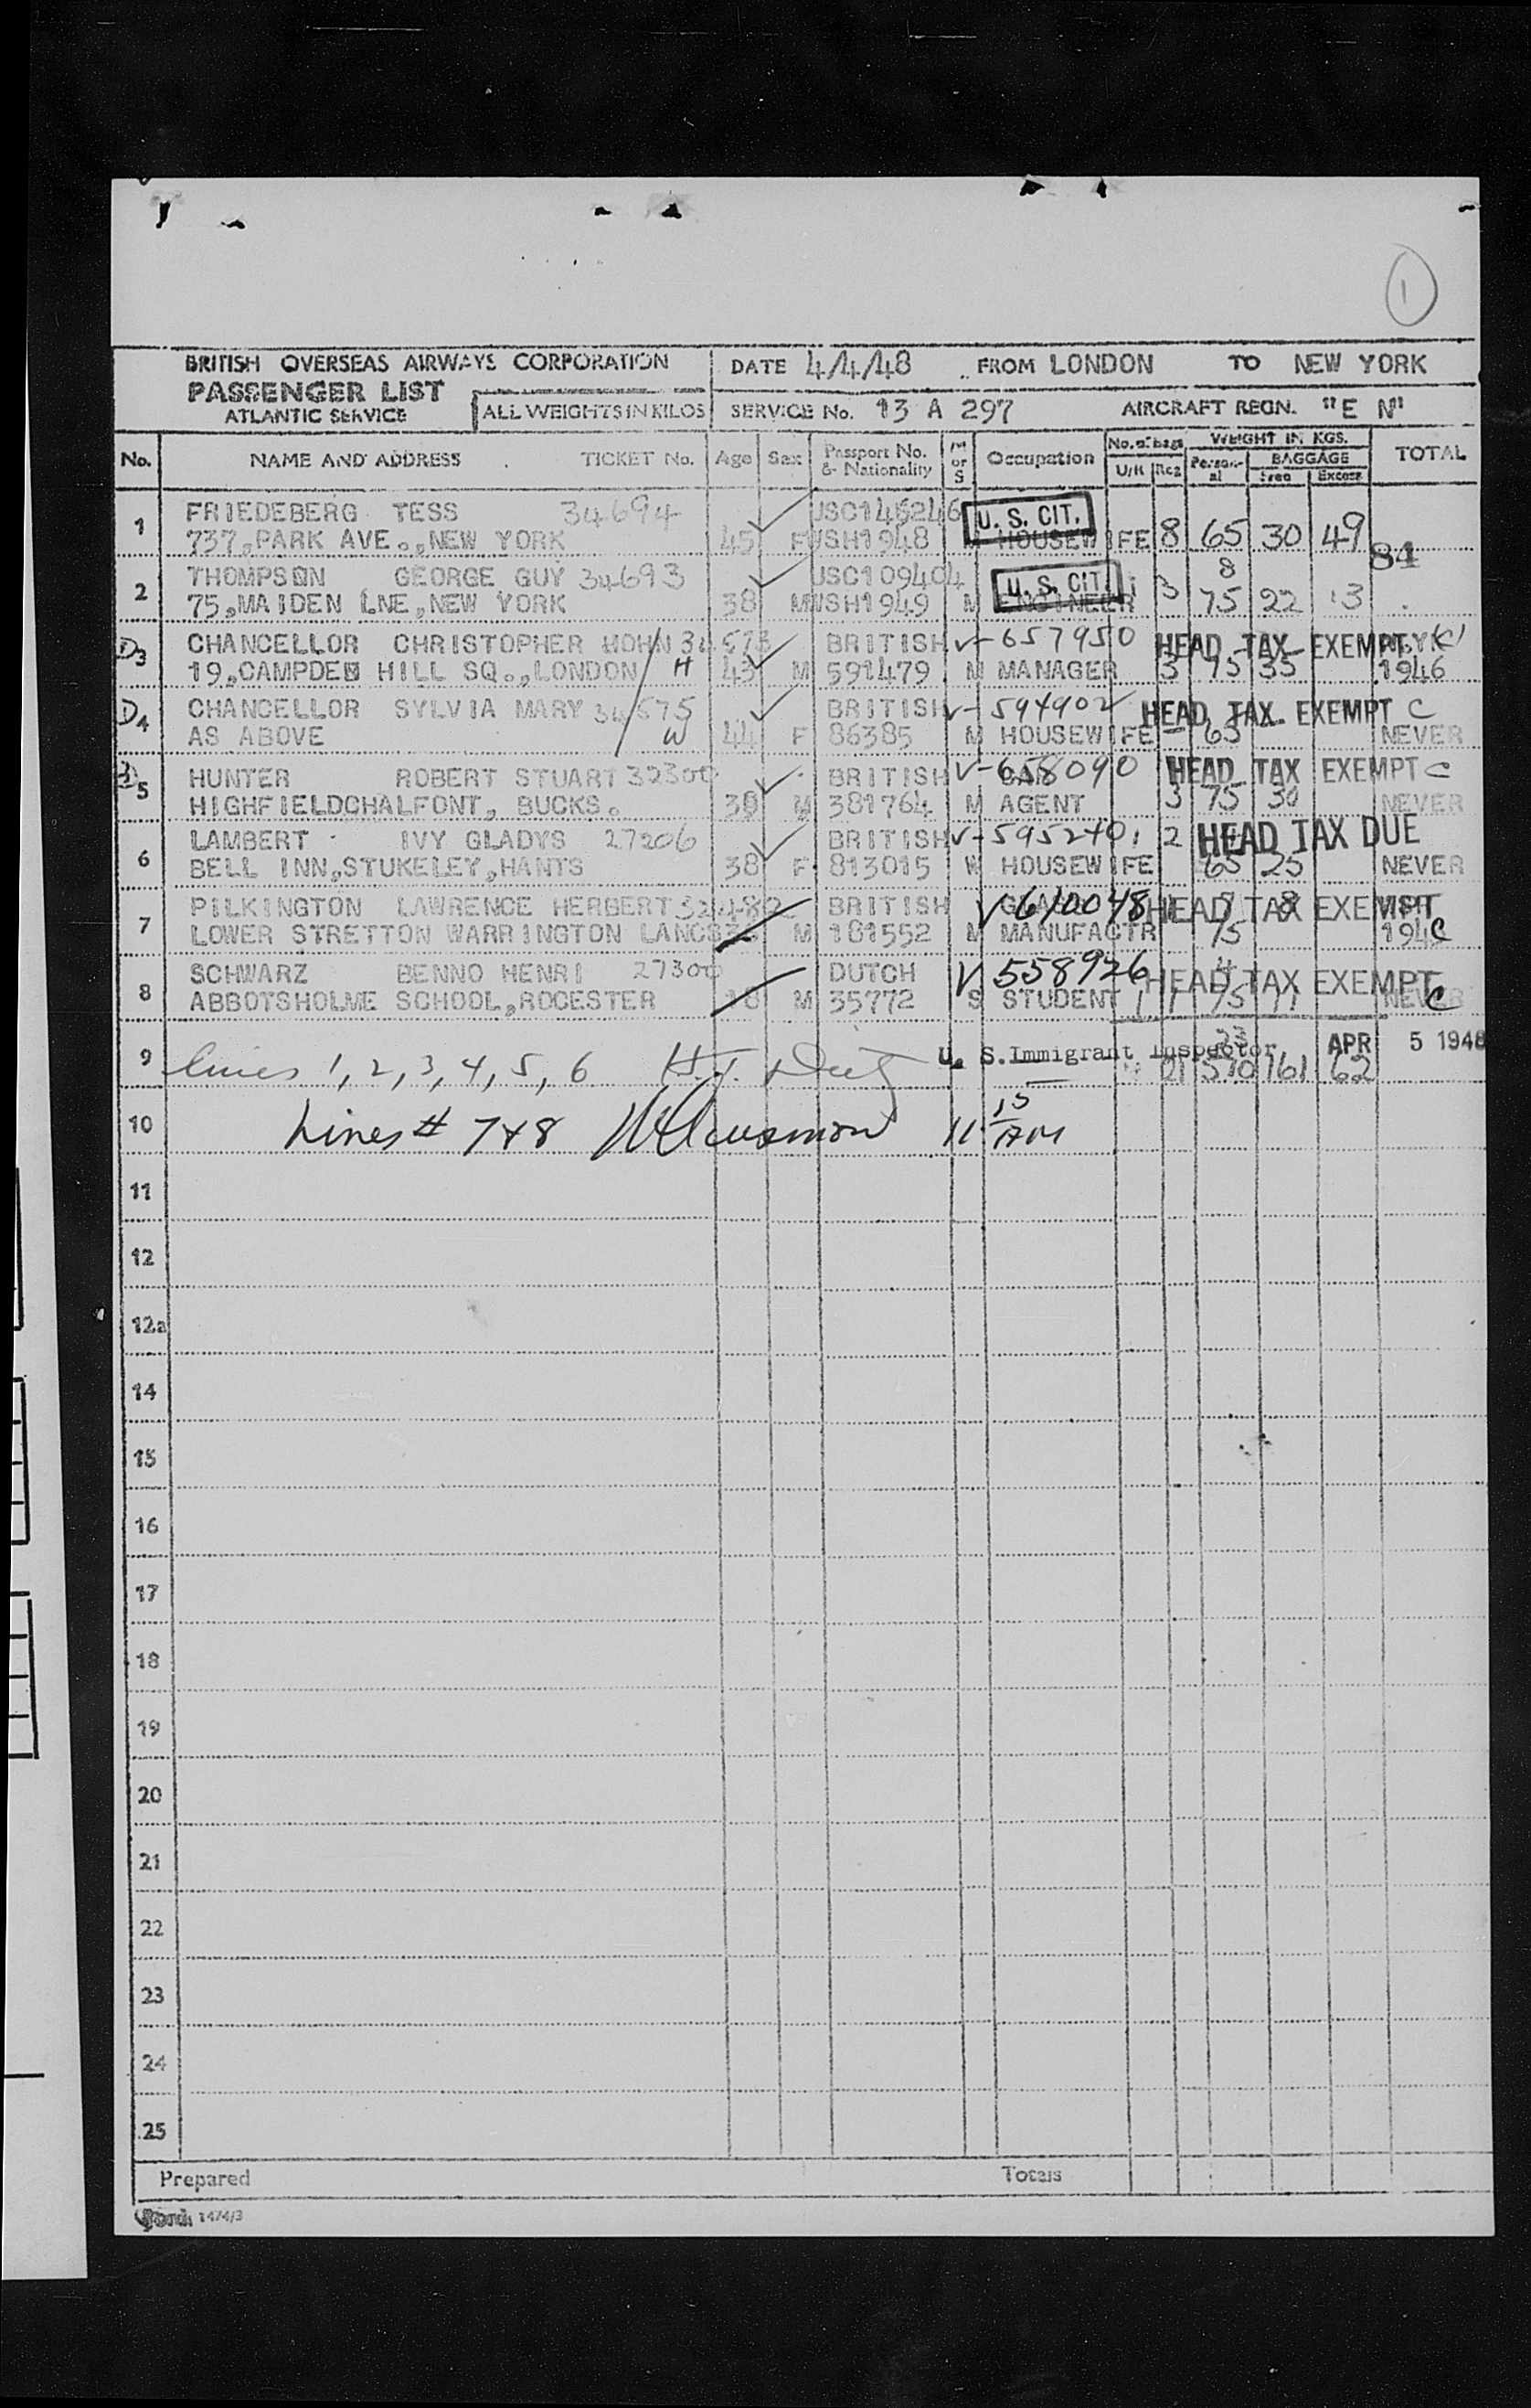 1
BRITISH OVERSEAS AIRWAYS CORPORATION
PASSENGER LIST
ATLANTIC SERVICE
ALL WEIGHTS IN KILOS
DATE 4/4/48 FROM LONDON TO NEW YORK
SERVICE No. 13 A 297 AIRCRAFT REGN. "E N"
No. NAME AND ADDRESS TICKET No. Age Sex Passport No. & Nationality M or S Occupation No. of bags U/R Reg WEIGHT IN KGS. Personal BAGGAGE Free Excess TOTAL
1 FRIEDEBERG TESS 34694 U. S. CIT.
737,PARK AVE.,NEW YORK 45 F WSH1948 HOUSEWIFE 8 65 30 49 84
2 THOMPSON GEORGE GUY 34693 USC109404 U. S. CIT. 8
75,MAIDEN LNE,NEW YORK 38 M WSH1949 M ENGINEER 3 75 22 13
3 CHANCELLOR CHRISTOPHER BRITISH V-657950 HEAD TAX EXEMPT
19,CAMPDEN HILL SQ.,LONDON H 43 M 591479 M MANAGER 3 75 35 1946
4 CHANCELLOR SYLVIA MARY 34575 BRITISH V-594902 HEAD TAX EXEMPT C
AS ABOVE W 44 F 86385 M HOUSEWIFE 65 NEVER
5 HUNTER ROBERT STUART 32300 BRITISH V-658090 HEAD TAX EXEMPT C
HIGHFIELDCHALFONT, BUCKS. 39 M 381764 M AGENT 3 75 30 NEVER
6 LAMBERT IVY GLADYS 27206 BRITISH V-595240 2 HEAD TAX DUE
BELL INN,STUKELEY,HANTS 38 F 813015 W HOUSEWIFE 65 25 NEVER
7 PILKINGTON LAWRENCE HERBERT BRITISH V 610048 HEAD TAX EXEMPT
LOWER STRETTON WARRINGTON LANCS M 181552 M MANUFACTR 75 C
8 SCHWARZ BENNO HENRI 27300 DUTCH V 558926 HEAD TAX EXEMPT
ABBOTSHOLME SCHOOL,ROCESTER 18 M 35772 S STUDENT 1 75 11 NEVER C
9 U. S. Immigrant Inspector 23 APR 5 1948
lines 1, 2, 3, 4, 5, 6 21 510 161 62
10 Lines # 7+8 11 15 AM
11
12
12a
14
15
16
17
18
19
20
21
22
23
24
25
Prepared Totals
1474/3